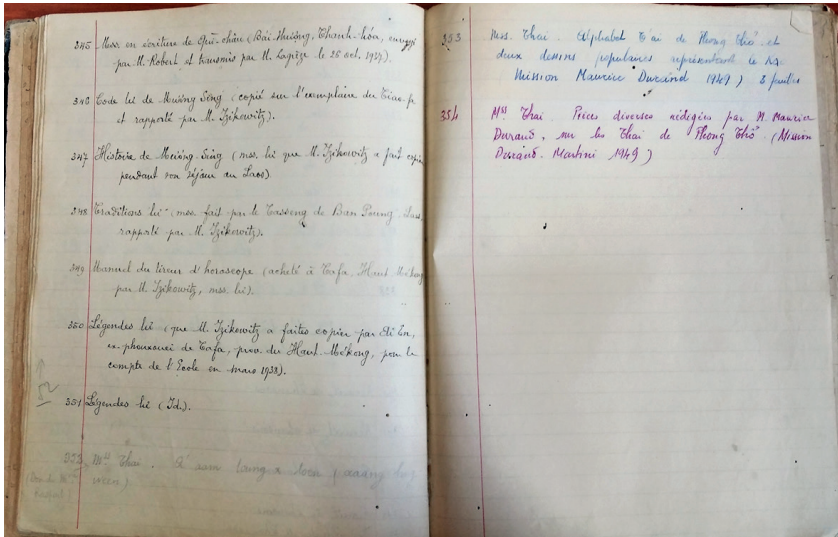 345 Mss. en écriture de Quì-châu (Bái-Thượng, Thanh-hóa, envoyé
par M. Robert et transmis par M. Lagrèze le 26 oct. 1937).
346 Code lü de Mường Sing (copié sur l'exemplaire du
et rapporté par M. Izikowitz).
347 Histoire de Mường-Sing (mss. lü que M. Izikowitz a fait copier
pendant son séjour au Laos)
348 Traditions lü (mss. fait par le Tasseng de Ban Poung Laos,
rapporté par M. Izikowitz).
349 Manuel du tireur d'horoscope (acheté à Tafa, Haut Mékong
par M. Izikowitz, mss. lü).
350 Légendes lü (que M. Izikowitz a faites copier par
de Tafa, prov. du Haut-Mékong, pour le
compte de l'Ecole en mars 1938).
351 Légendes lü (Id.).
Mss Thai.
353 Mss. Thai. Alphabet Thai de Phong Thổ et
deux dessins populaires représentant le
(Mission Maurice Durand 1949) 3 feuilles
354 Mss Thai. Pièces diverses rédigées par M. Maurice
Durand, sur les Thai de Phong Thổ (Mission
Durand. Martini 1949)